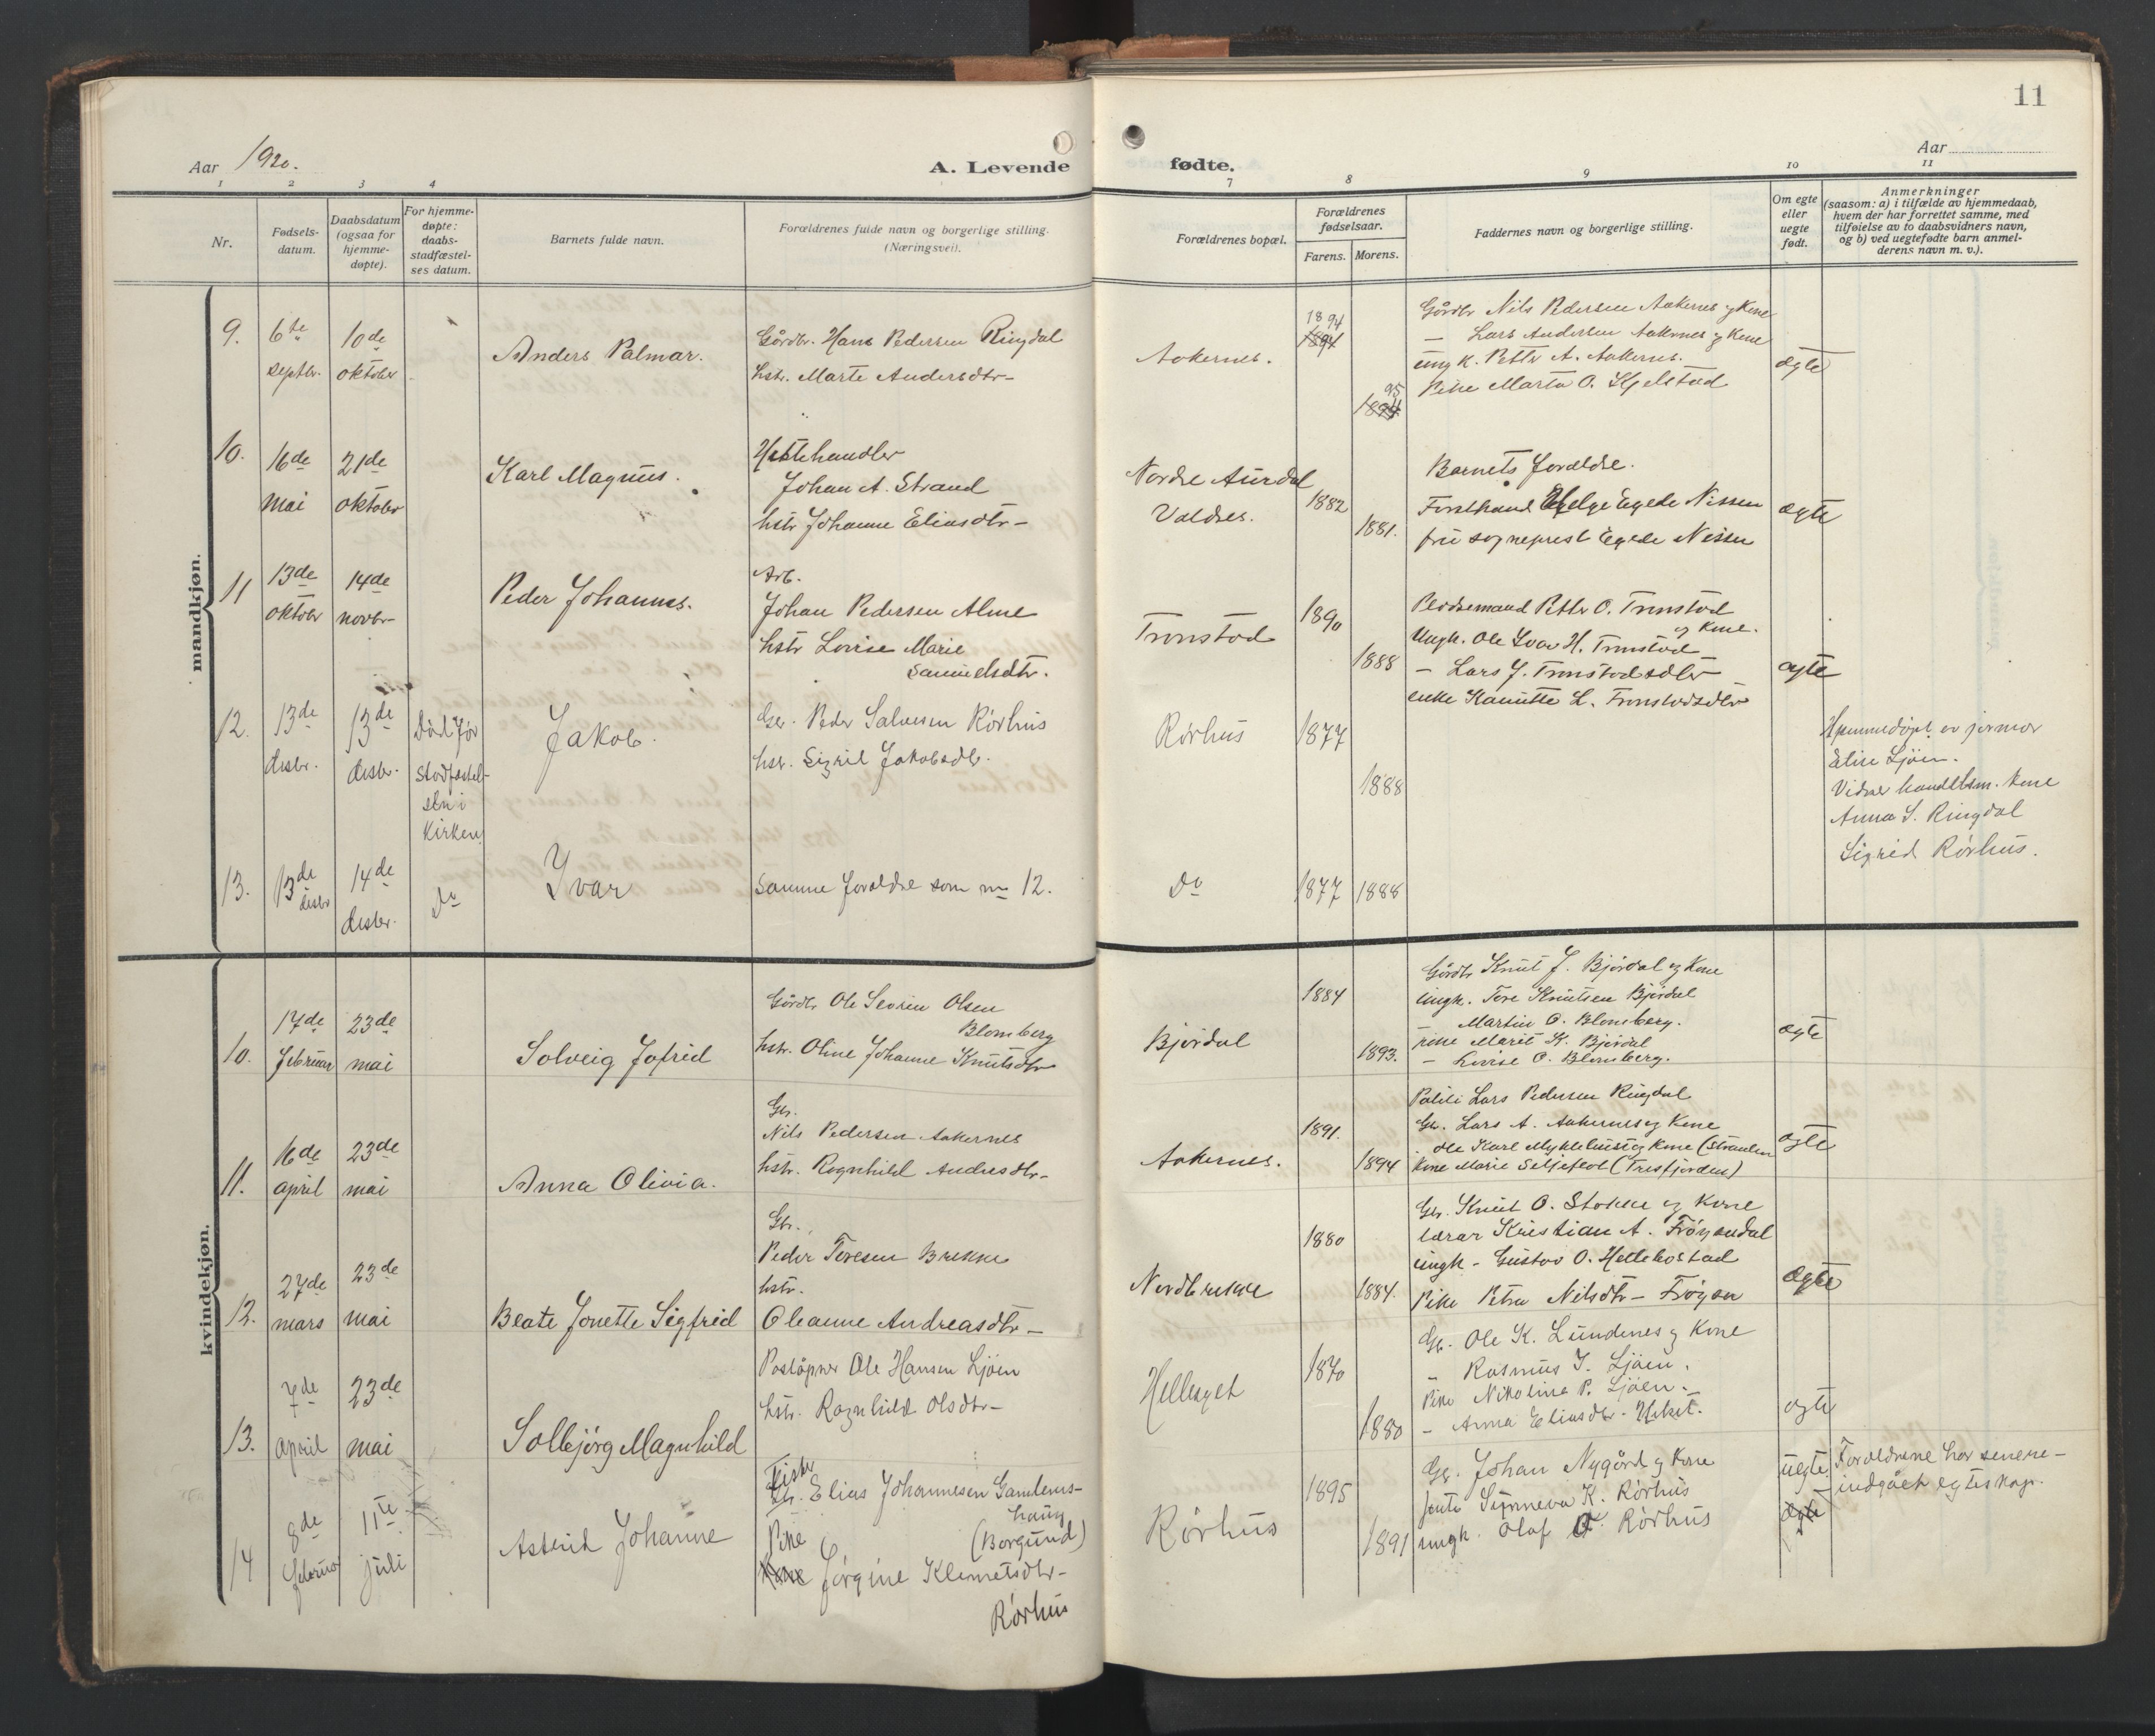 11
Aar 1920.
A. Levende
fødte.
Aar
1 2 3 4
7 8 9 10 11
Nr.
Fødsels-
datum.
Daabsdatum
(ogsaa for
hjemme-
døpte).
For hjemme-
døpte:
daabs-
stadfæstel-
ses datum.
Barnets fulde navn.
Forældrenes fulde navn og borgerlige stilling.
(Næringsvei).
Forældrenes bopæl.
Forældrenes
fødselsaar.
Farens. Morens.
Faddernes navn og borgerlige stilling.
Om egte
eller
uegte
født.
Anmerkninger
(saasom: a) i tilfælde av hjemmedaab,
hvem der har forrettet samme, med
tilføielse av to daabsvidners navn,
og b) ved uegtefødte barn anmel-
derens navn m. v.).
mandkjøn.
9.
6te
septbr.
10de
oktober
Anders Palmar.
Gårdbr. Hans Pedersen Ringdal
hstr. Marte Andersdtr-
Aakernes.
1894
1894
95
1894
Gårdbr Nils Pedersen Aakernes og Kone
— Lars Andersen Aakernes og Kone
ungk. Petter A. Aakernes.
Pike Marta O. Kjelstad
ægte
10.
16de
mai
21de
oktober
Karl Magnus.
Hestehandler
Johan A. Strand
hstr Johanne Eliasdtr-
Nordre Aurdal
Valdres.
1882
1881.
Barnets forældre.
Helge Egede Nissen
fru sogneprest Egede Nissen
ægte
11
13de
oktober
14de
novbr-
Peder Johannes.
Arb.
Johan Pedersen Alme
hstr Lovise Marie
Samuelsdtr.
Tronstad
1890
1888
Petter O. Tronstad
og Kone.
Ungk. Ole Ivar H. Tronstad
— Lars J. Tronstad
L. Tronstad
ægte
12.
13de
desbr.
13de
desbr.
Död før
stadfæstel-
sen i
kirken
Jakob.
Gbr. Peder Salvesen Rørhus
hstr. Sigrid Jakobsdtr.
Rørhus
1877
1888
Hjemmedøpt av jormor
Elise Ljøen.
Vidner handelsm. kone
Anna S. Ringdal
Sigrid Rørhus.
13.
13de
desbr
14de
desbr.
Do
Ivar
Samme foreldre som no 12.
Do
1877
1888
kvindekjøn.
10.
17de
februar
23de
mai
Solveig Jofrid
Gårdbr Ole Severin Olsen
Blomberg
hstr. Oline Johanne Knutsdtr
Bjørdal
1884
1893.
Gårdbr Knut J. Bjørdal og Kone
ungk. Tore Knutsen Bjørdal
Martin O. Blomberg.
pike Marit K. Bjørdal
— Lovise O. Blomberg.
ægte
11.
16de
april
23de
mai
Anna Olivia.
Gbr.
Nils Pedersen Aakernes
hstr. Ragnhild Andersdtr-
Aakernes.
1891.
1894
Politi Lars Pedersen Ringdal
Gbr. Lars A. Aakernes og Kone
Ole Karl Myklebust og Kone (Stranden
Kone Marie Seljeflot (Tresfjorden)
ægte
12.
27de
mars
23de
mai
Beate Jonette Sigfrid
Gbr.
Peder Toresen Brekke
hstr.
Oleanne Andreasdtr-
Nordbrekke
1880
1884.
Gbr. Knut O. Stokke og Kone
lærar Kristian A. Frøysendal
ungk - Gustav O. Hellebostad
Pike Petra Nilsdtr- Frøysa
ægte
13.
7de
april
23de
mai
Solbjørg Magnhild
Poståpner Ole Hansen Ljøen
hstr. Ragnhild Olsdtr-
Hellesylt
1870
1880
Gbr. Ole K. Lundenes og Kone
— Rasmus I. Ljøen.
Pike Nikoline P. Ljøen.
— Anna Eliasdtr.
ægte
14
8de
februar
11te
juli
Astrid Johanne
Fisker
Gbr. Elias Johannesen Gamlems-
haug
(Borgund)
Pike
Kone Jørgine Klemetsdtr-
Rørhus
Rørhus
1895
1891
Gbr. Johan Nygård og Kone
jente Synneva K. Rørhus
ungk. Olaf K. Rørhus
uegte
ægte
Foreldrene har senere
indgået egteskap.